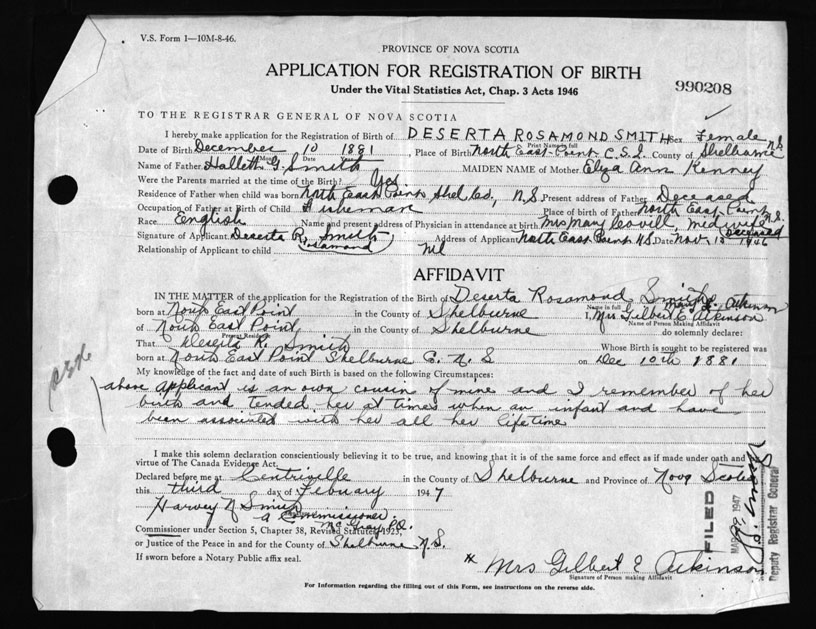 V.S. Form 1—10M-8-46.
PROVINCE OF NOVA SCOTIA
APPLICATION FOR REGISTRATION OF BIRTH
990208
Under the Vital Statistics Act, Chap. 3 Acts 1946
TO THE REGISTRAR GENERAL OF NOVA SCOTIA
I hereby make application for the Registration of Birth of DESERTA ROSAMOND SMITH Sex Female
Print Name in full
Date of Birth December 10 1881, Place of Birth North East Point C.S.I. County of Shelburne N.S.
Month Date Year
Name of Father Hallett G. Smith MAIDEN NAME of Mother Eliza Ann Kenney
Were the Parents married at the time of the Birth? Yes
Residence of Father when child was born North East Point Shel. Co., N.S. Present address of Father Deceased
Occupation of Father at Birth of Child Fisherman Place of birth of Father North East Point N.S.
Race English Name and present address of Physician in attendance at birth Mrs Mary Covill, midwife Deceased
Signature of Applicant Deserta R. Smith Address of Applicant North East Point N.S. Date Nov. 15 1946
Rosamond
Relationship of Applicant to child Nil
AFFIDAVIT
IN THE MATTER of the application for the Registration of the Birth of Deserta Rosamond Smith
Name in full Mary E. Atkinson
born at North East Point in the County of Shelburne I, Mrs Gilbert E Atkinson
Name of Person Making Affidavit
of North East Point, in the County of Shelburne do solemnly declare:
Present Residence
That Deserta R. Smith Whose Birth is sought to be registered was
born at North East Point Shelburne C. N.S on Dec 10th 1881
My knowledge of the fact and date of such Birth is based on the following Circumstances:
above applicant is an own cousin of mine and I remember of her
birth and tended her at times when an infant and have
been associated with her all her lifetime
I make this solemn declaration conscientiously believing it to be true, and knowing that it is of the same force and effect as if made under oath and
virtue of The Canada Evidence Act.
Declared before me at Centreville in the County of Shelburne and Province of Nova Scotia
this third day of February 1947
Harvey N Smith
a Commissioner
Commissioner under Section 5, Chapter 38, Revised Statutes 1923,
McGray P.O.
or Justice of the Peace in and for the County of Shelburne N.S.
If sworn before a Notary Public affix seal.
Mrs Gilbert E Atkinson
Signature of Person making Affidavit
For Information regarding the filling out of this Form, see instructions on the reverse side.
FILED
1947
Deputy Registrar General